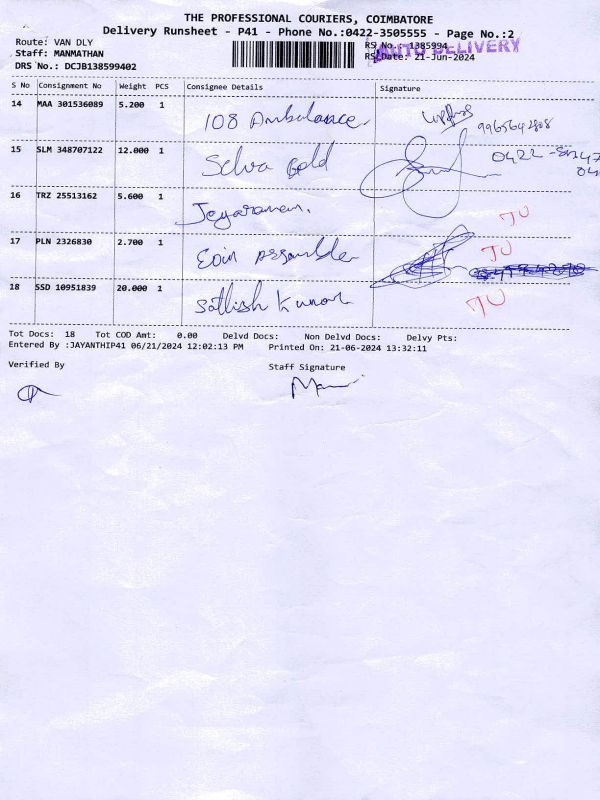 THE PROFESSIONAL COURIERS, COIMBATORE
Delivery Runsheet - P41 - Phone No.:0422-3505555 - Page No.:2
Route: VAN DLY
RS No.: 1385994
AUTO DELIVERY
Staff: MANMATHAN
RS Date: 21-Jun-2024
DRS No.: DCJB138599402
S No Consignment No Weight PCS Consignee Details Signature
14 MAA 301536089 5.200 1 108 Ambulance.
15 SLM 348707122 12.000 1 Selva Gold 0422 -
16 TRZ 25513162 5.600 1 Jeyaraman. TU
17 PLN 2326830 2.700 1 TU
18 SSD 10951839 20.000 1 Sathish Kumar TU
Tot Docs: 18 Tot COD Amt: 0.00 Delvd Docs: Non Delvd Docs: Delvy Pts:
Entered By :JAYANTHIP41 06/21/2024 12:02:13 PM Printed On: 21-06-2024 13:32:11
Verified By Staff Signature